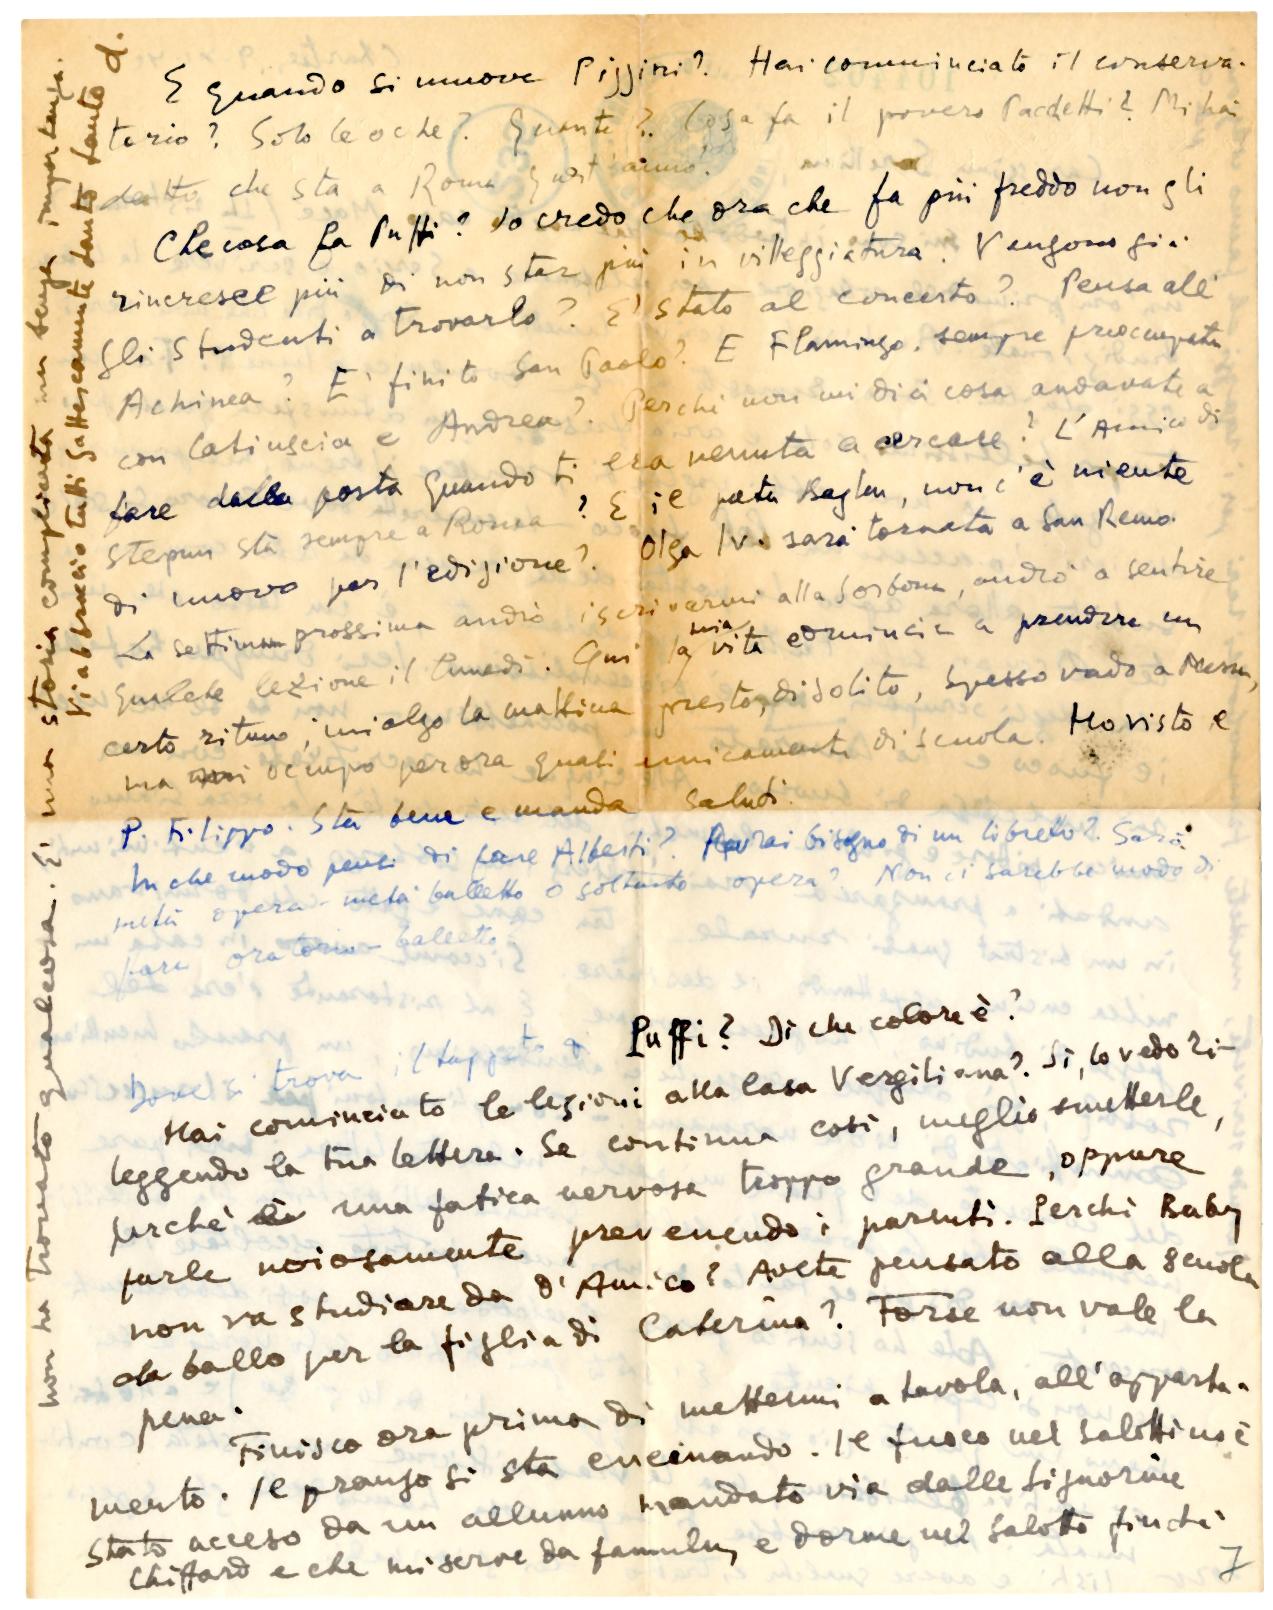 E quando si muove Pizzini? Hai comminciato il conserva-
torio? Solo le oche? Quante? Cosa fa il povero Pacchetti? Mi hai
detto che sta a Roma quest'anno.
Che cosa fa Puffi? Io credo che ora che fa più freddo non gli
rincresce più di non star più in villeggiatura. Vengono già
gli studenti a trovarlo? E' stato al concerto? Pensa all'
Achinea? E' finito San Paolo? E Flamingo, sempre preoccupato
con Catiuscia e Andrea? Perchè non mi dici cosa andavate a
fare dalla posta quando ti era venuta a cercare? L'Amico di
Stepun sta sempre a Roma? E il poeta, non c'è niente
di nuovo per l'edizione? Olga Iv. sarà tornata a San Remo.
La settimana prossima andrò iscrivermi alla Sorbona, andrò a sentire
qualche lezione il lunedì. Qui la mia vita comincia a prendere un
certo ritmo, mi alzo la mattina presto, di solito, spesso vado a Messa,
ma mi ocupo per ora quasi unicamente di scuola. Ho visto e
P. Filippo. Sta bene e manda saluti.
In che modo pensi di fare Alberti? Avrai bisogno di un libretto? Sarà
metà opera - metà balletto o soltanto opera? Non ci sarebbe modo di
fare oratorio-balletto.
Dove si trova il tappeto di Puffi? Di che colore è?
Hai cominciato le lezioni alla Casa Vergiliana? Si, lo vedo ri-
leggendo la tua lettera. Se continua così, meglio smetterle,
perchè è una fatica nervosa troppo grande, oppure
farle noiosamente prevenendo i parenti. Perchè Baby
non va studiare da D'Amico? Avete pensato alla scuola
da ballo per la figlia di Caterina? Forse non vale la
pena.
Finisco ora prima di mettermi a tavola, all'apparta-
mento. Il pranzo si sta cucinando. Il fuoco nel salottino è
stato acceso da un allunno mandato via dalle Signorine
Chiffard e che mi serve da famulus e dorme nel salotto finchè
7
non ha trovato qualcosa. E' una storia complicata ma senza importanza.
Vi abbraccio tutti gattescamente tanto tanto
d.